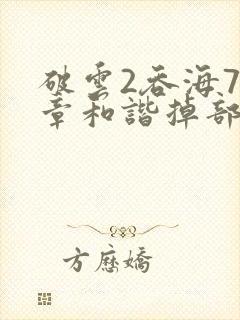 破雲2吞海7
章和諧掉部
方應嬌